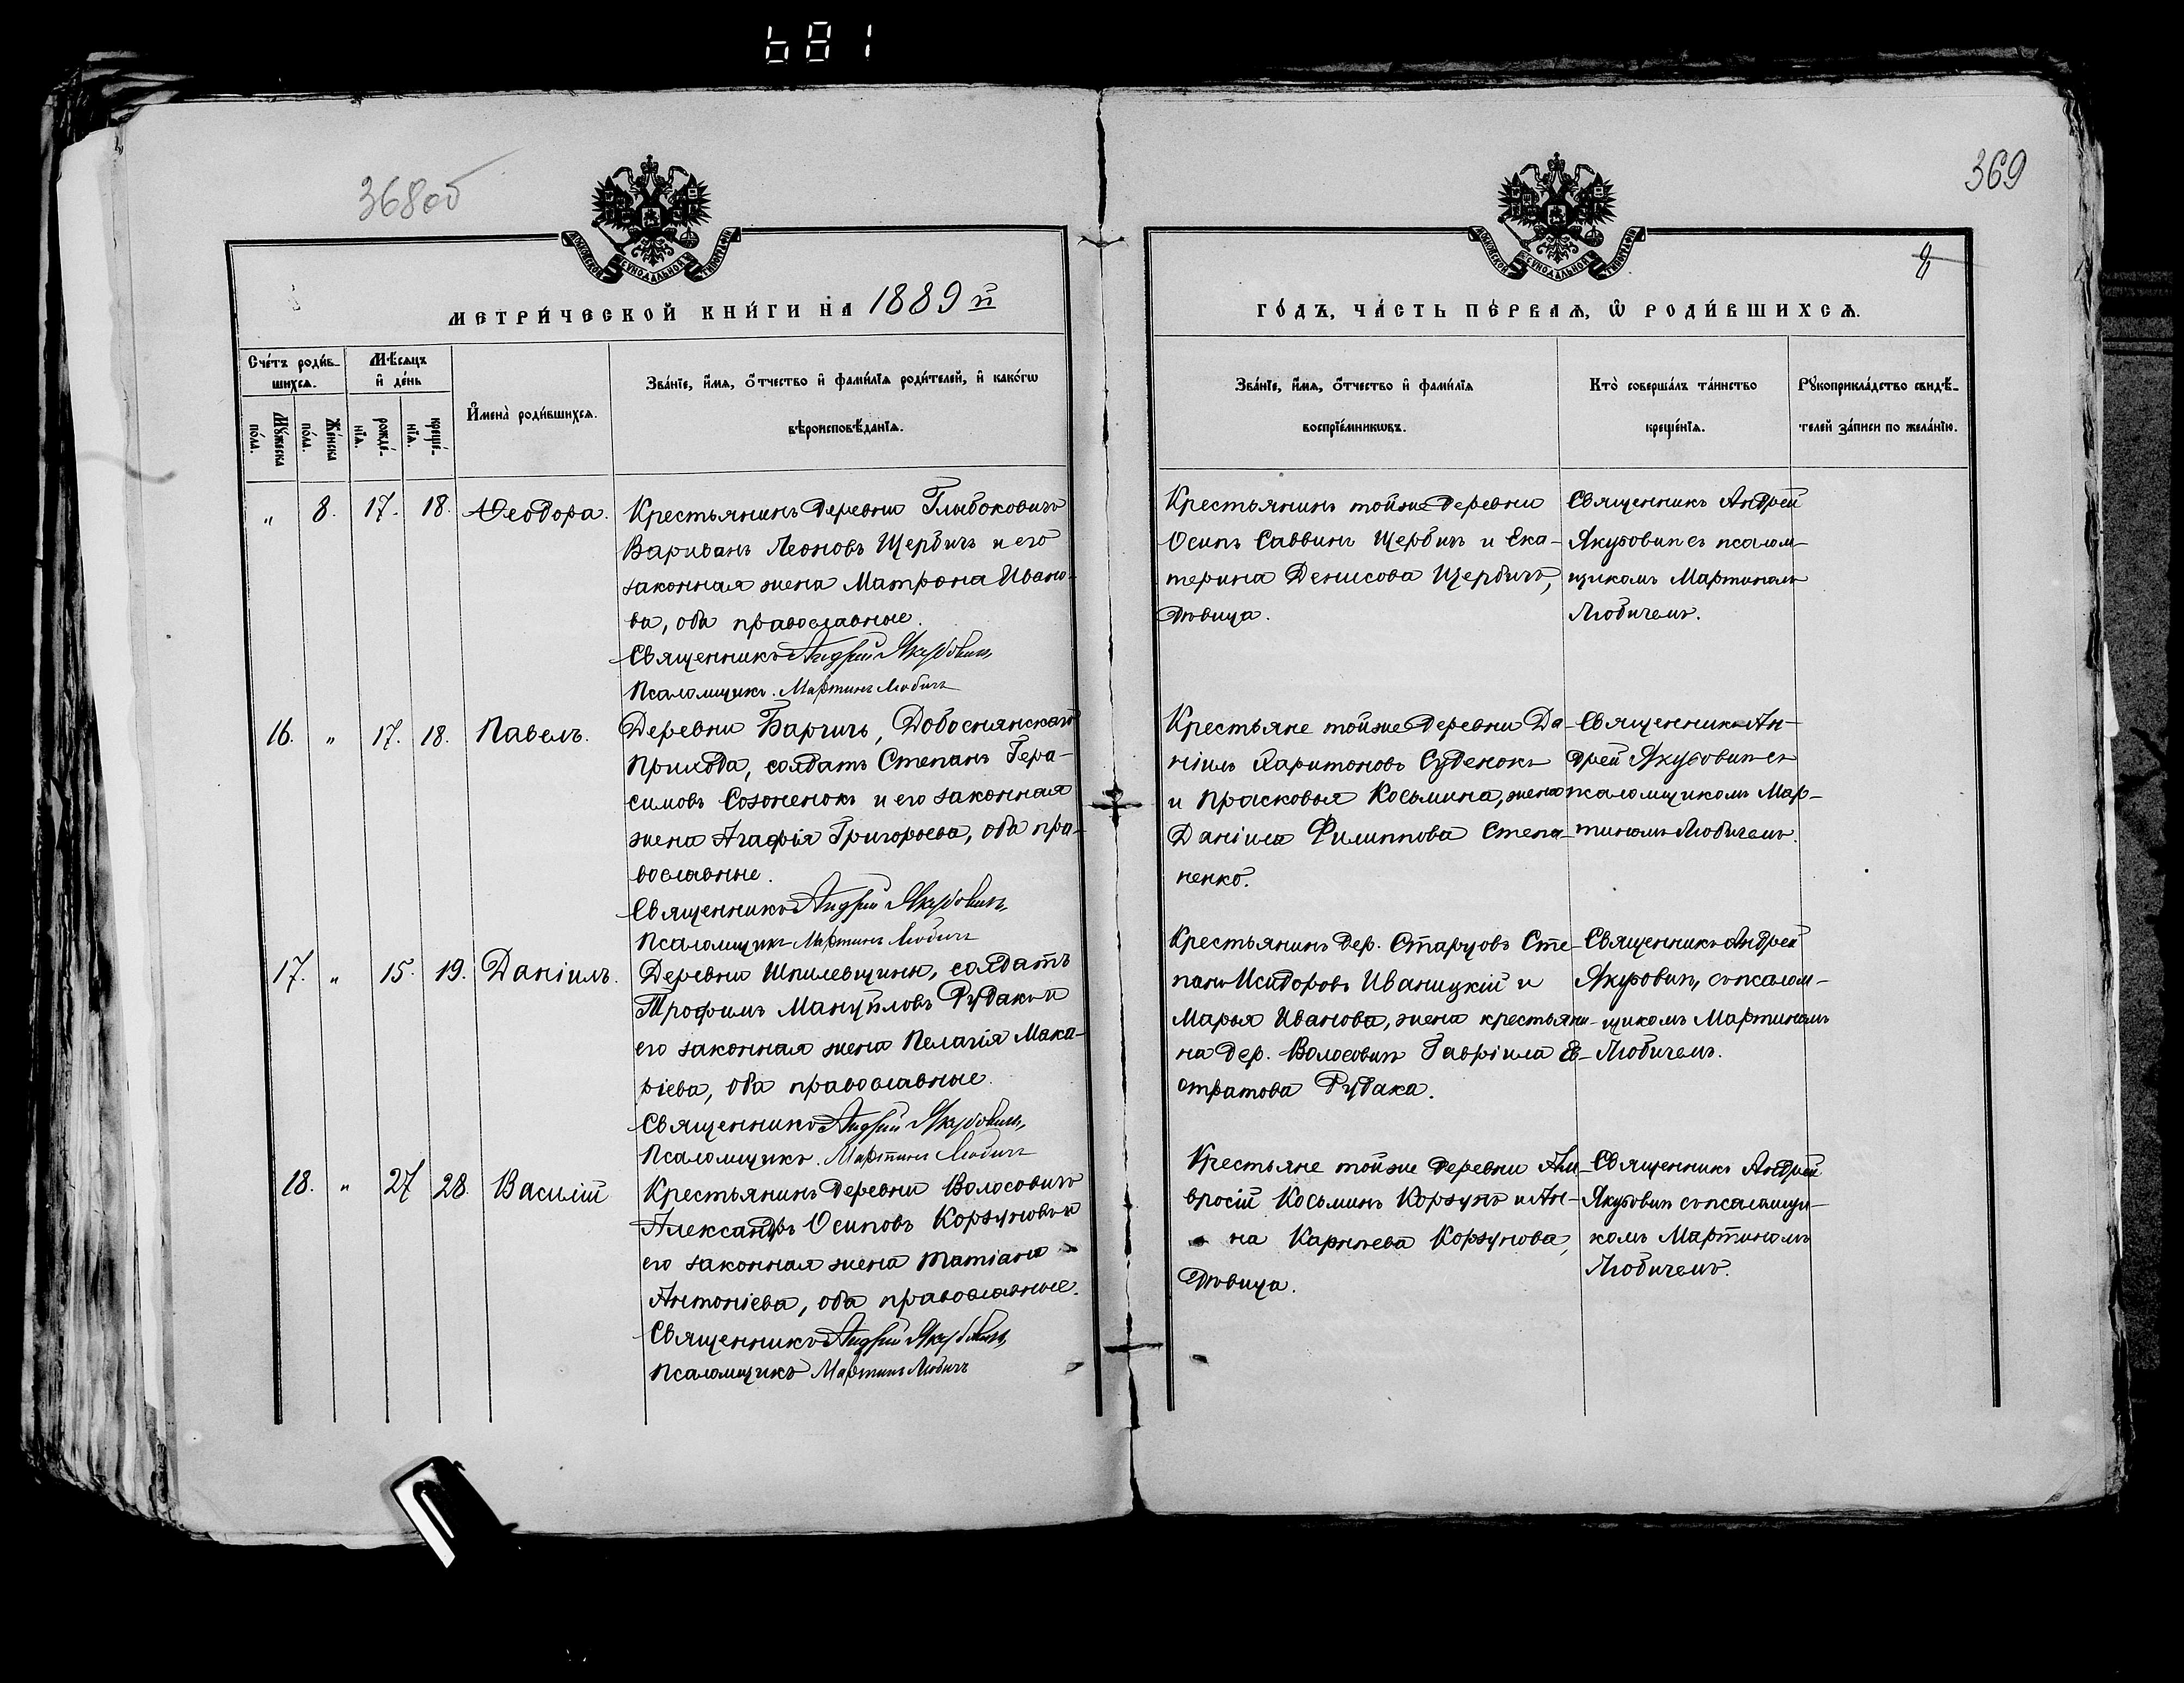 681
368об
369
8
МОСКОВСКОЙ СУНОДАЛЬНОЙ ТИПОГРАФІИ
МОСКОВСКОЙ СУНОДАЛЬНОЙ ТИПОГРАФІИ
МЕТРИ́ЧЕСКОЙ КНИ́ГИ НА 1889 й
ГО́ДЪ, ЧА́СТЬ ПЕ́РВАѦ, Ѡ҆ РОДИ́ВШИХСѦ.
Сче́тъ роди́в-
шихсѧ.
Мꙋ́жеска по́ла.
Же́нска по́ла.
Мѣ́сѧцъ
и҆ де́нь
рожде́-нїѧ.
креще́-нїѧ.
И҆мена̀ роди́вшихсѧ.
Зва́нїе, и҆́мѧ, о҆́тчество и҆ фами́лїѧ роди́телей, и҆ како́гѡ
вѣроисповѣ́данїѧ.
Зва́нїе, и҆́мѧ, о҆́тчество и҆ фами́лїѧ
воспрїе́мникѡвъ.
Кто̀ соверша́лъ та́инство
креще́нїѧ.
Рꙋкоприкла́дство свидѣ́-
телей за́писи по жела́нїю.
„ 8. 17. 18. Ѳеодора.
Крестьянинъ деревни Глыбоковичъ
Вариванъ Леоновъ Щербичъ и его
законная жена Матрона Ивано-
ва, оба православные.
Священникъ Андрей Якубовичъ
Псаломщикъ Мартинъ Любичъ
Крестьянинъ тойже деревни
Осипъ Саввинъ Щербичъ и Ека-
терина Денисова Щербичъ,
дѣвица.
Священникъ Андрей
Якубовичъ съ псалом-
щикомъ Мартиномъ
Любичемъ.
16. „ 17. 18. Павелъ.
Деревни Барчичъ, Добоснянскаго
прихода, солдатъ Степанъ Гера-
симовъ Созоненокъ и его законная
жена Агафія Григорьева, оба пра-
вославные.
Священникъ Андрей Якубовичъ
Псаломщикъ Мартинъ Любичъ
Крестьяне тойже деревни Да-
ніилъ Харитоновъ Суденокъ
и Прасковья Косьмина, жена
Даніила Филиппова Степа-
ненко.
Священникъ Ан-
дрей Якубовичъ съ
псаломщикомъ Мар-
тиномъ Любичемъ.
17. „ 15. 19. Даніилъ.
Деревни Шпилевщины, солдатъ
Трофимъ Мануйловъ Рудакъ и
его законная жена Пелагія Мака-
ріева, оба православные.
Священникъ Андрей Якубовичъ
Псаломщикъ Мартинъ Любичъ
Крестьянинъ дер. Старцовъ Сте-
панъ Исидоровъ Иваницкій и
Марья Иванова, жена крестьяни-
на дер. Волосовичъ Гавріила Ев-
стратова Рудака.
Священникъ Андрей
Якубовичъ, съ псалом-
щикомъ Мартиномъ
Любичемъ.
18. „ 27 28. Василій
Крестьянинъ деревни Волосовичъ
Александръ Осиповъ Корзуновъ и
его законная жена Татіана
Антоніева, оба православные.
Священникъ Андрей Якубовичъ
Псаломщикъ Мартинъ Любичъ
Крестьяне тойже деревни Ам-
вросій Косьминъ Корзунъ и Ан-
на Карпѣева Корзунова,
дѣвица.
Священникъ Андрей
Якубовичъ съ псаломщи-
комъ Мартиномъ
Любичемъ.